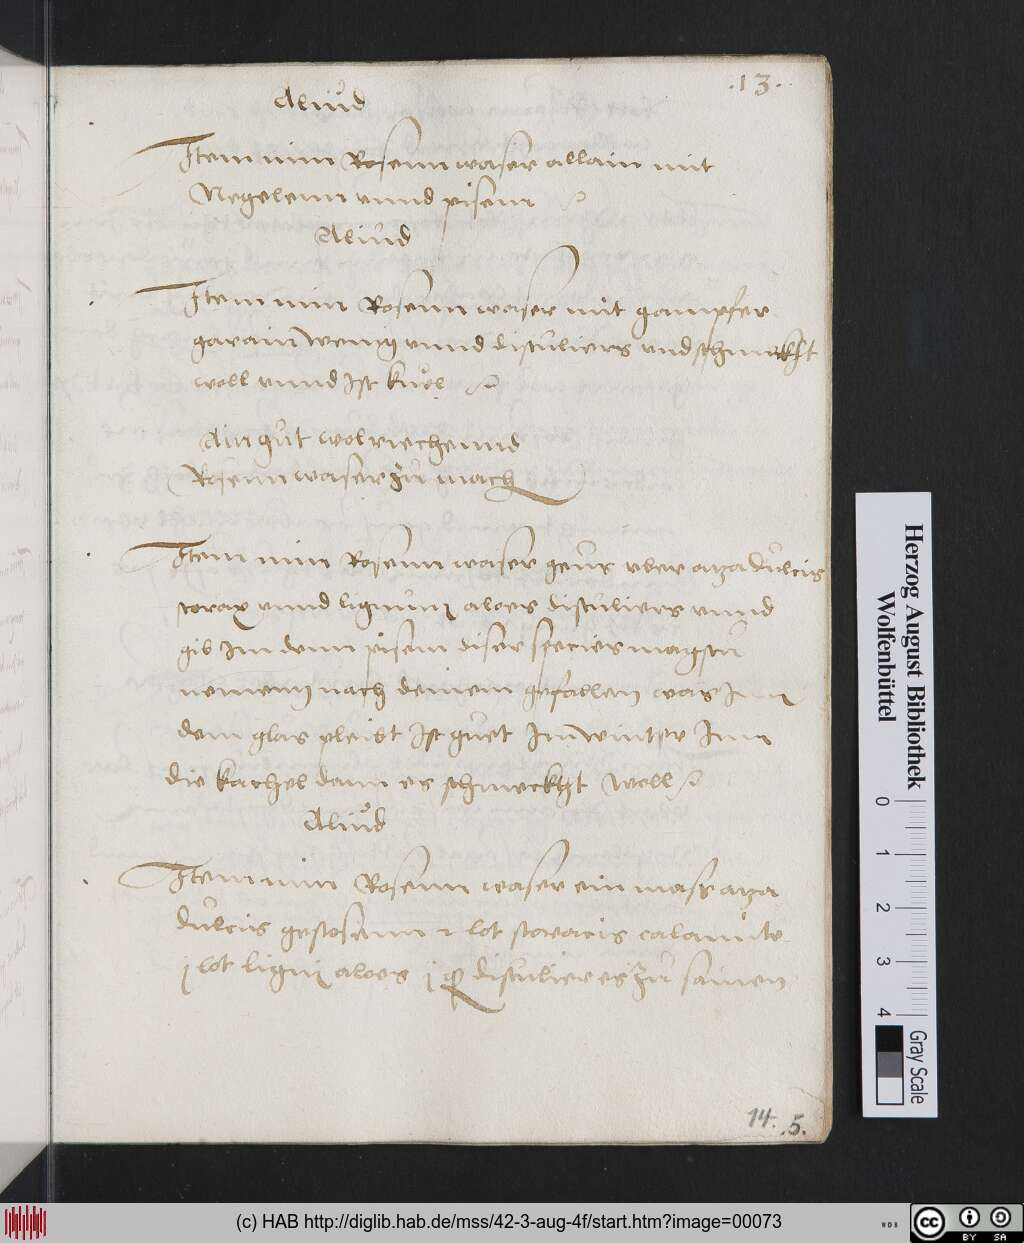 .13.
Aliud
Item nim Rosenn waser allain mit
Negelenn unnd pisem
Aliud
Item nim Rosenn waser mit gampfer
garain wenig unnd distuliers und schmeckht
woll unnd Ist kuel
Ain gut wolriechennd
Rosenn waser zu mach
Item nim Rosenn waser geus uber aza dulcis
storax unnd lignum aloes distuliers unnd
gib Im denn pisem diser species magstu
nemenn nach deinem gefallen was Inn
dem glas pleibt Ist guet Im winter Inn
die kachel dann es schmeckht woll
Aliud
Item nim Rosenn waser ein mass aza
dulcis gestosenn 2 lot storacis calamite
j lot ligni aloes j distulier es zu samen
14. 5.
Herzog August Bibliothek
Wolfenbüttel
0 1 2 3 4
Gray Scale
(c) HAB http://diglib.hab.de/mss/42-3-aug-4f/start.htm?image=00073
WDB
cc BY SA